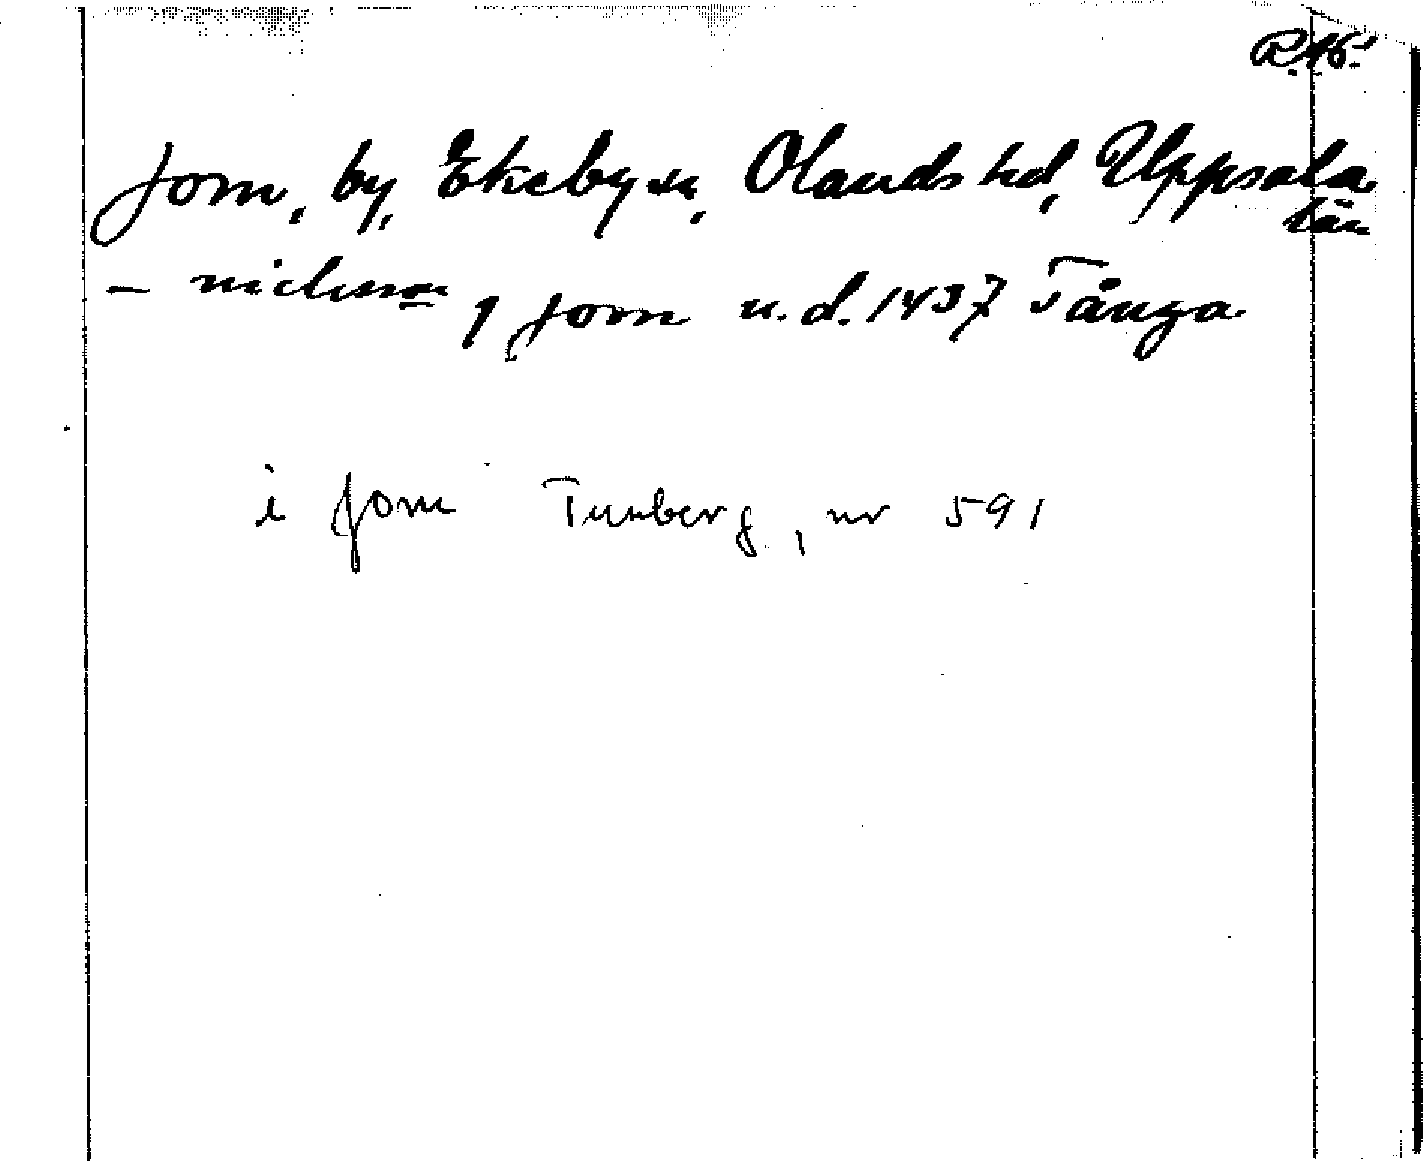 R.16.
Jom, by, Ekeby sn, Olands hd, Uppsala
län
- nichisson j Jom u.d. 1437 Tånga
i Jom Tunberg, nr 591